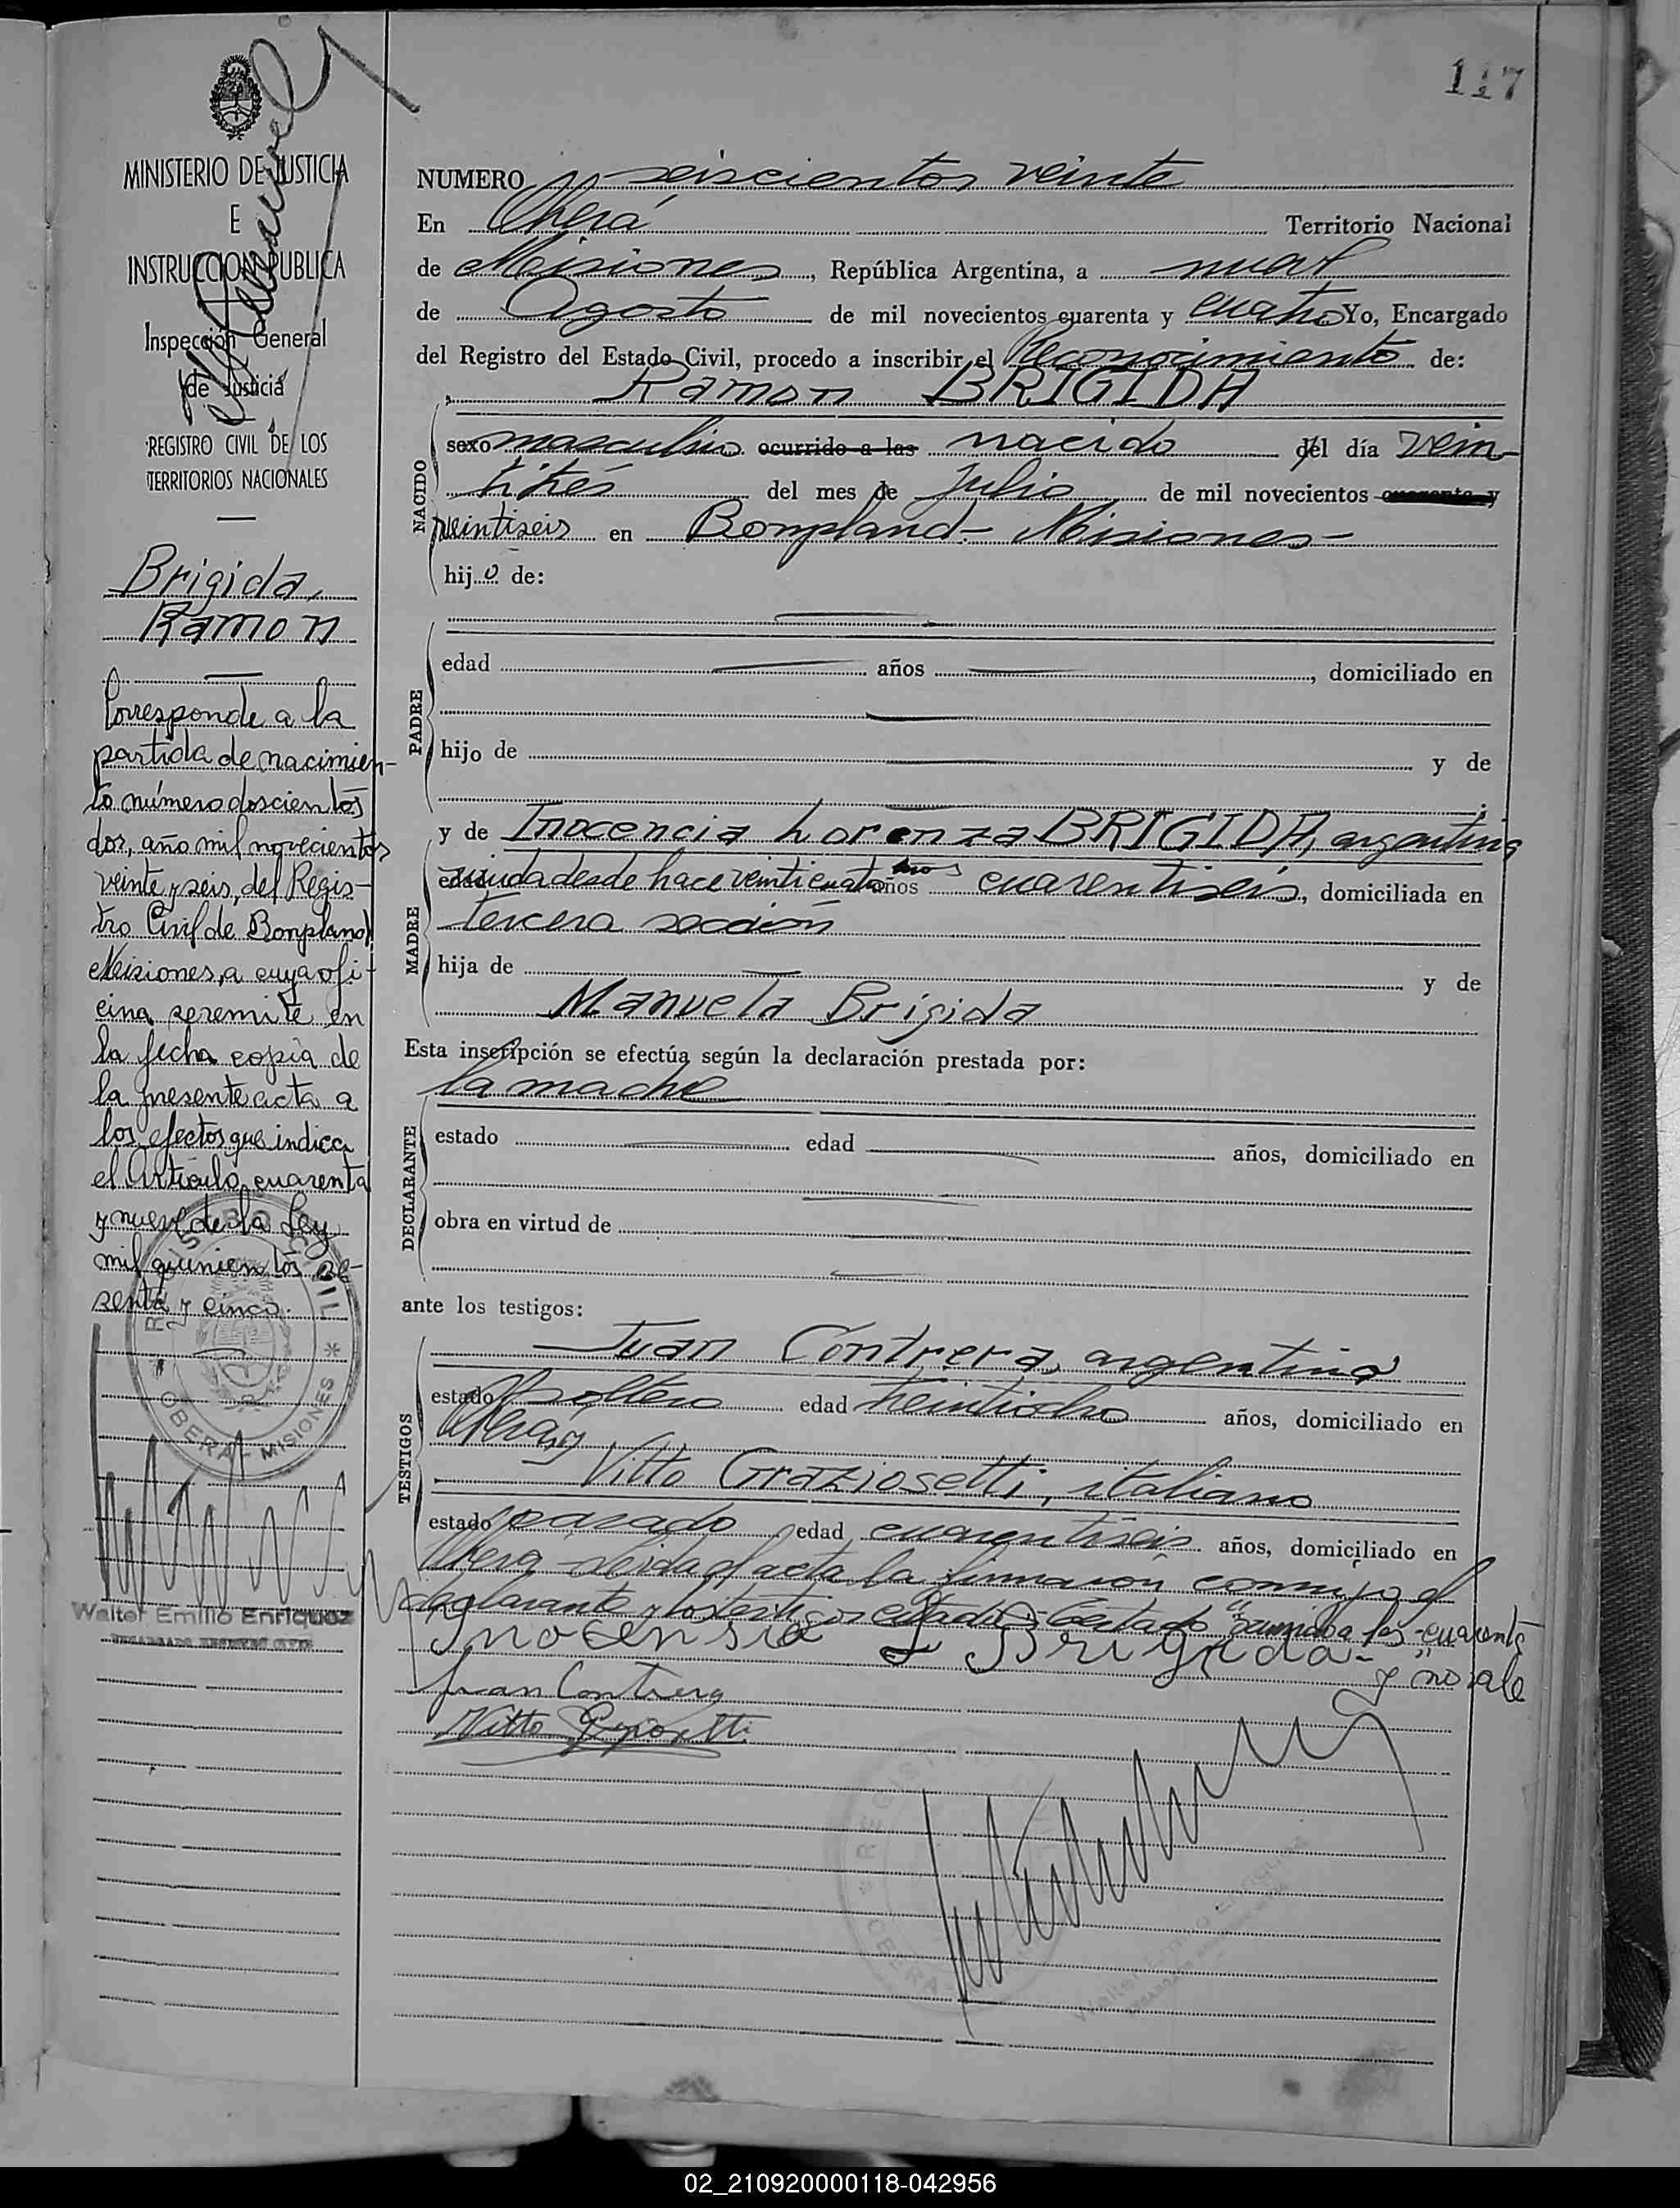 117
MINISTERIO DE JUSTICIA
E
INSTRUCCION PUBLICA
Inspección General
de Justicia
REGISTRO CIVIL DE LOS
TERRITORIOS NACIONALES
Brigida,
Ramon
Corresponde a la
partida de nacimien-
to número doscientos
dos, año mil novecientos
veinte y seis, del Regis-
tro Civil de Bonpland
Misiones, a cuya ofi-
cina se remite en
la fecha copia de
la presente acta a
los efectos que indica
el Artículo cuarenta
y nueve de la Ley
mil quinientos se-
senta y cinco.
REGISTRO CIVIL
OBERA - MISIONES
Walter Emilio Enriquez
ENCARGADO REGISTRO CIVIL
NUMERO seiscientos veinte
En Oberá Territorio Nacional
de Misiones, República Argentina, a nueve
de Agosto de mil novecientos cuarenta y cuatro Yo, Encargado
del Registro del Estado Civil, procedo a inscribir el Reconocimiento de:
Ramon BRIGIDA
NACIDO
sexo masculino ocurrido a las nacido del día vein-
titrés del mes de Julio de mil novecientos cuarenta y
veintiseis en Bompland - Misiones -
hijo de:
PADRE
edad años , domiciliado en
hijo de y de
;
MADRE
y de Inocencia Lorenza BRIGIDA, argentina
edad viuda desde hace veinticuatro años años cuarentiseis, domiciliada en
tercera sección
hija de y de
Manuela Brigida
Esta inscripción se efectúa según la declaración prestada por:
la madre
DECLARANTE
estado edad años, domiciliado en
obra en virtud de
ante los testigos:
TESTIGOS
Juan Contrera, argentino
estado soltero edad treintiocho años, domiciliado en
Oberá y
Vitto Graziosetti, italiano
estado casado edad cuarentiseis años, domiciliado en
Oberá leida el acta la firmaron conmigo el
declarante y los testigos citados - Testado "cuarenta
y" no vale
Inosensia L Brigida -
Juan Contrera
Vitto
Walter Emilio Enriquez
02_210920000118-042956